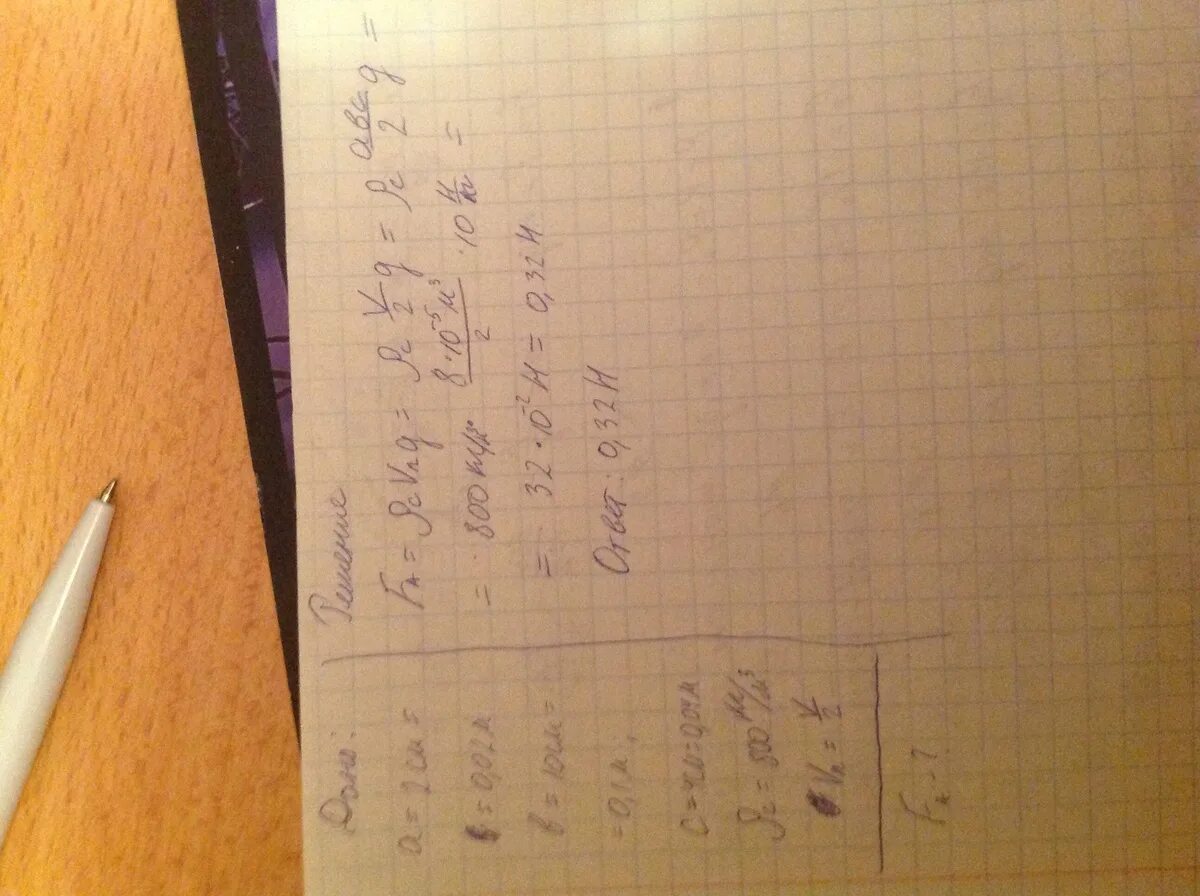 Дано:
a = 2 см =
= 0,02 м
в = 10 см =
= 0,1 м;
c = 4 см = 0,04 м
ρс = 800 кг/м³
Vп = V/2
FА - ?
Решение
FА = ρс Vп g = ρс V/2 g = ρс авс/2 g =
= 800 кг/м³ 8·10⁻⁵ м³/2 · 10 Н/кг =
= 32 · 10⁻² Н = 0,32 Н
Ответ: 0,32 Н